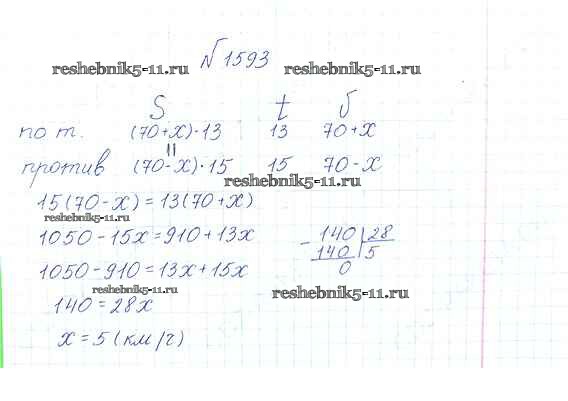 № 1593
reshebnik5-11.ru reshebnik5-11.ru
S t v
по т. (70+x)·13 13 70+x
||
против (70-x)·15 15 70-x
reshebnik5-11.ru
15(70-x)=13(70+x)
reshebnik5-11.ru
1050-15x=910+13x
1050-910=13x+15x
140=28x
x=5 (км/ч)
- 140 | 28
140 | 5
0
reshebnik5-11.ru